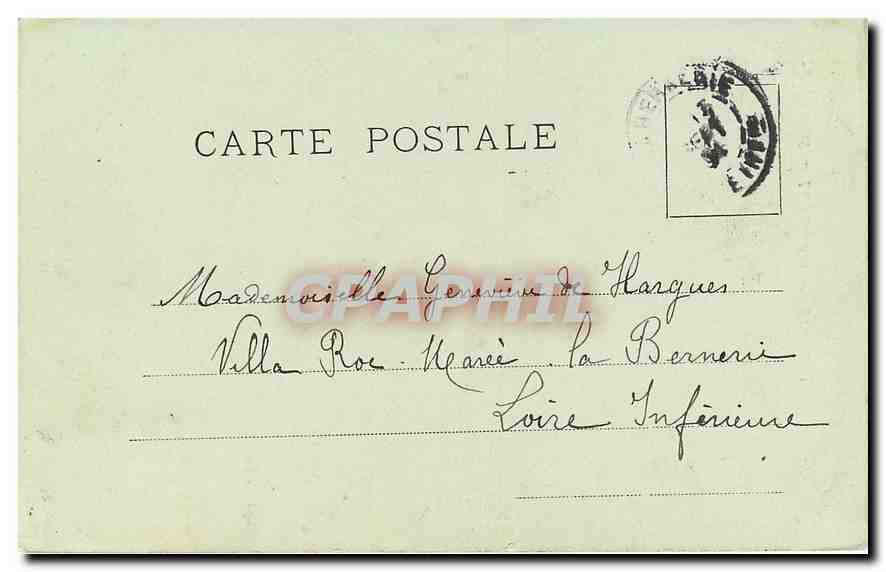 CARTE POSTALE
Mademoiselle Geneviève de Hargues
Villa Roc-Marée. la Bernerie
Loire Inférieure
GRAPHIL